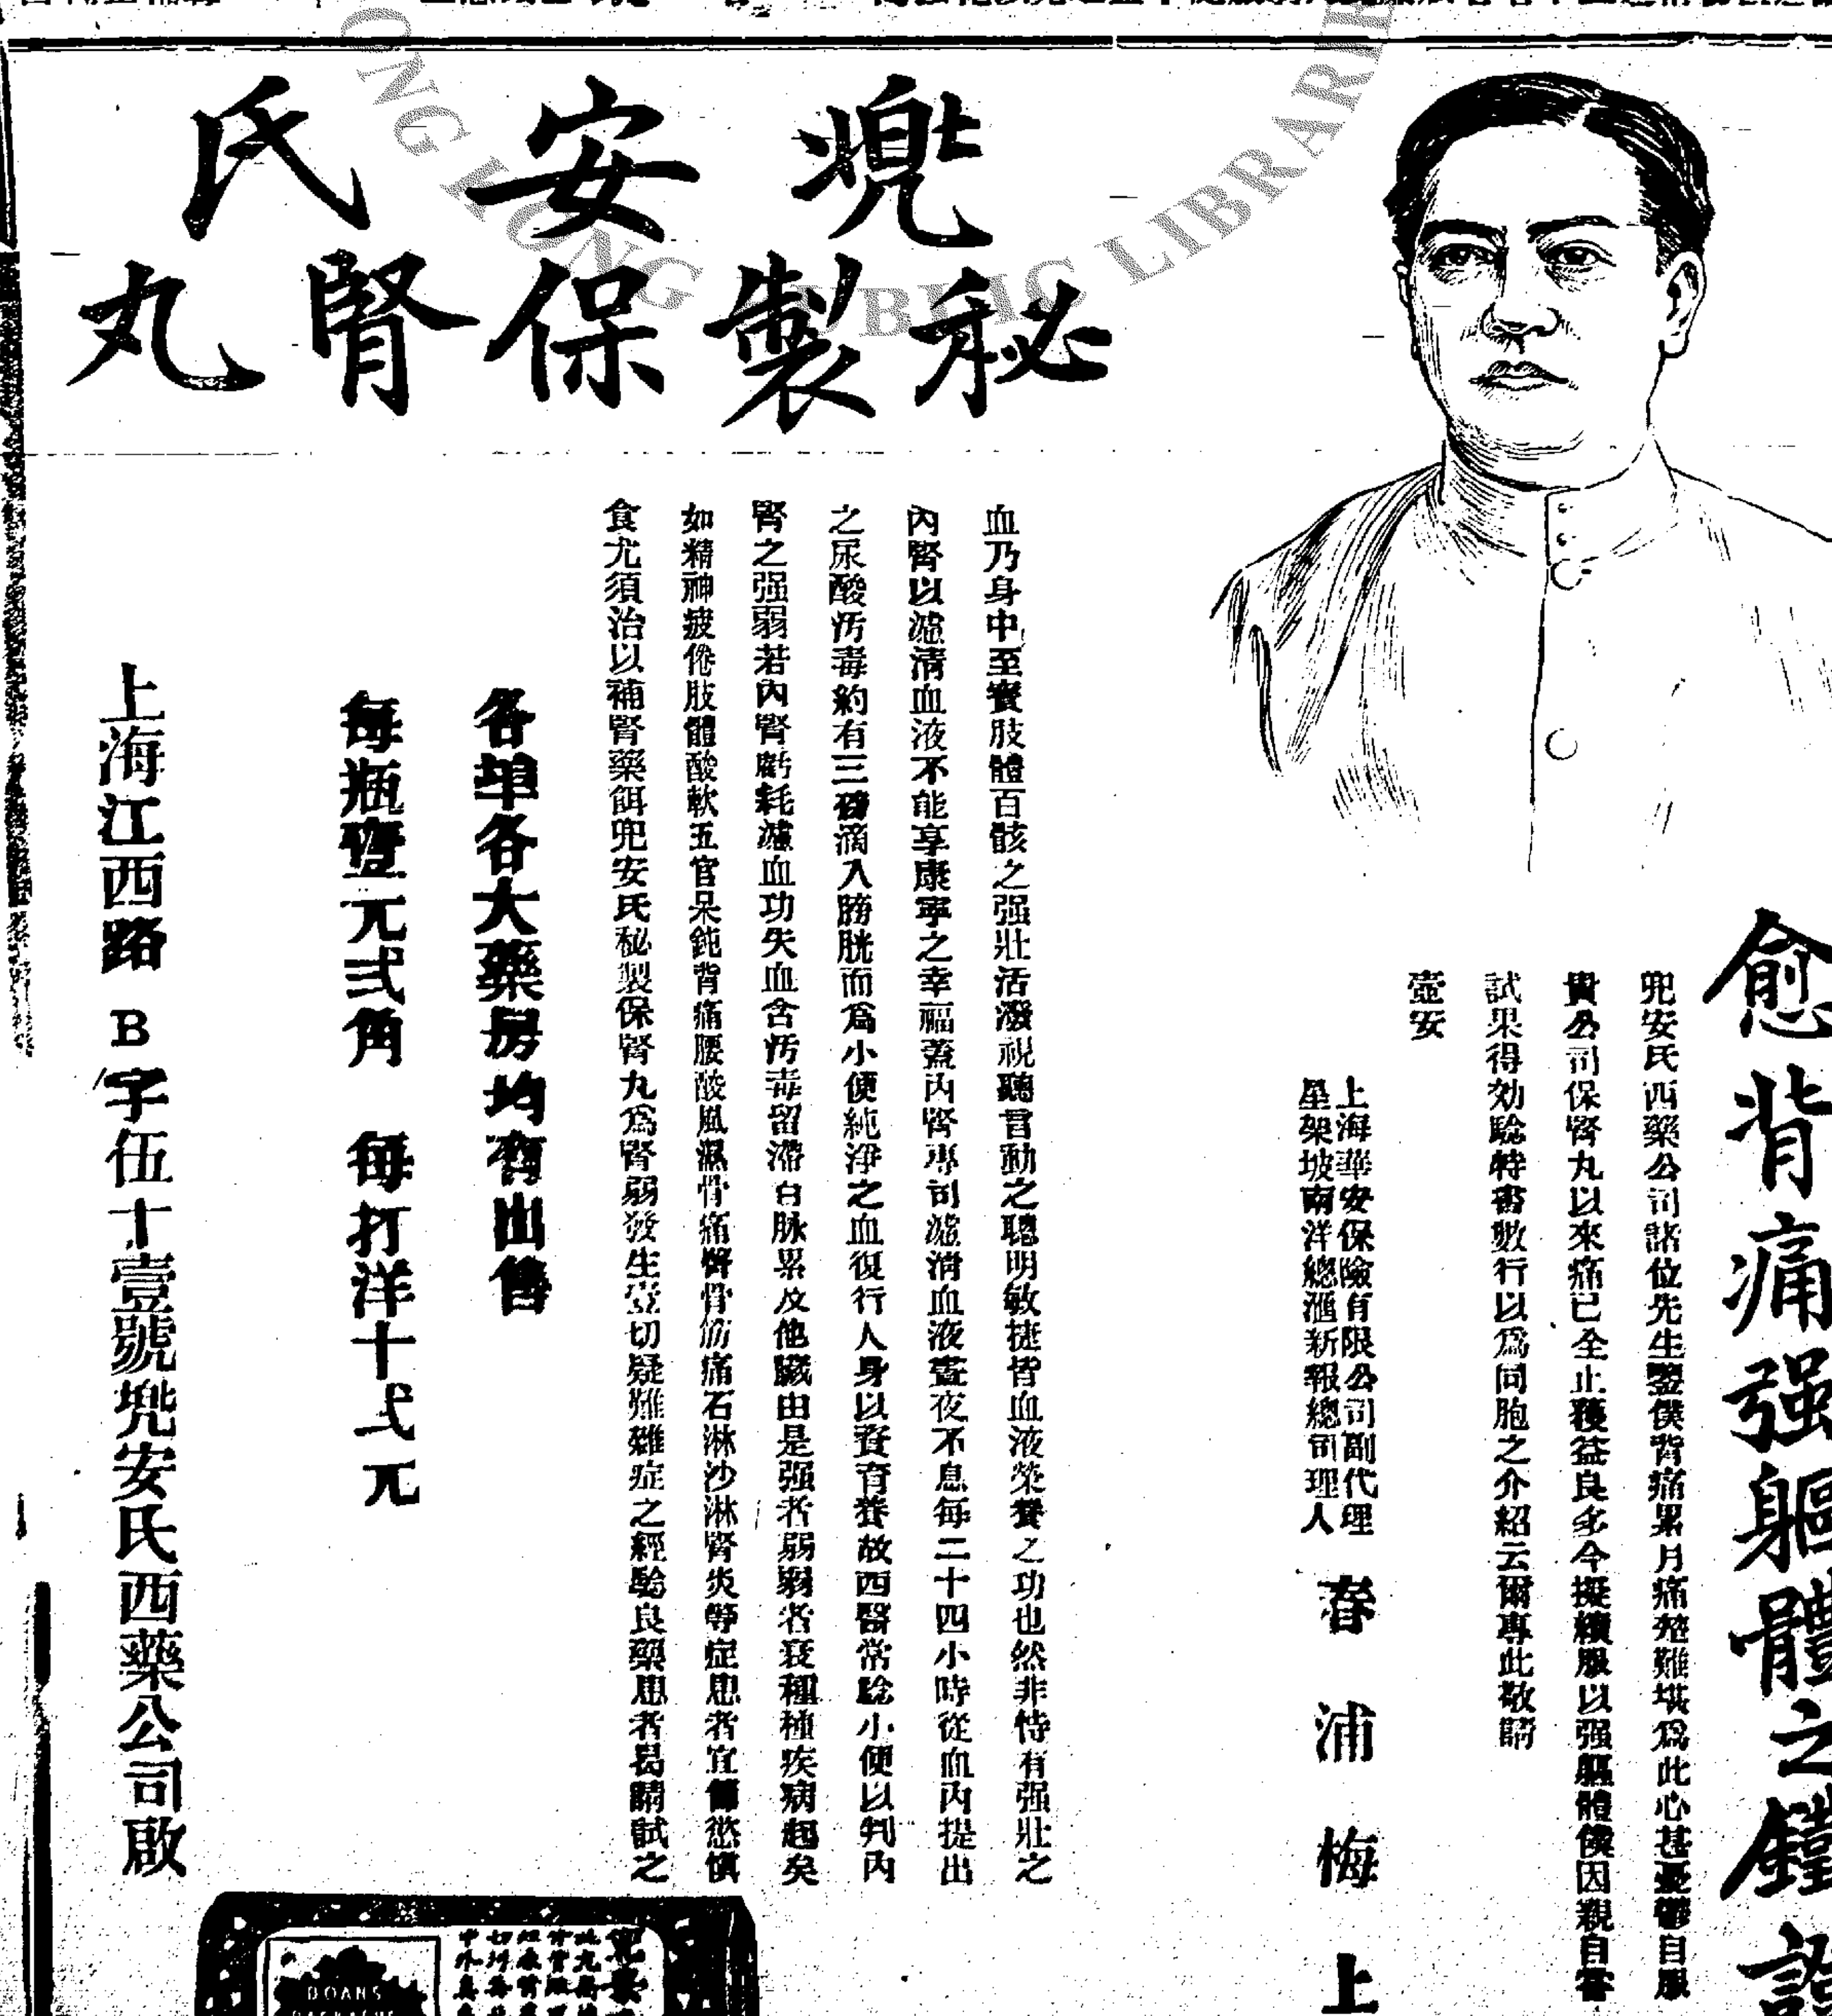 兜安氏
秘製保腎丸
愈背痛强軀體之鐵證
兜安氏西藥公司諸位先生鑒僕背痛累月痛楚難堪爲此心甚憂鬱自服
貴公司保腎丸以來痛已全止獲益良多今擬續服以强軀體僕因親自嘗
試果得効騐特書數行以爲同胞之介紹云爾專此敬請
壺安
上海華安保險有限公司副代理
星架坡南洋總滙新報總司理人
春浦梅上
血乃身中至寶肢體百骸之强壯活潑視聽言動之聰明敏捷皆血液榮養之功也然非恃有强壯之
內腎以濾清血液不能享康寧之幸福蓋內腎專司濾清血液晝夜不息每二十四小時從血內提出
之尿酸汚毒約有三磅滴入膀胱而爲小便純淨之血復行人身以資育養故西醫常騐小便以判內
腎之强弱若內腎虧耗濾血功失血含汚毒留滯百脉累及他臟由是强者弱弱者衰種種疾病起矣
如精神疲倦肢體酸軟五官呆鈍背痛腰酸風濕骨痛髀骨筋痛石淋沙淋腎炎等症患者宜節慾愼
食尤須治以補腎藥餌兜安氏秘製保腎丸爲腎弱發生壹切疑難雜症之經騐良藥患者曷請試之
各埠各大藥房均有出售
每瓶壹元弍角 每打洋十弍元
上海江西路B字伍十壹號兜安氏西藥公司啟
DOAN'S
BACKACHE
HONG KONG PUBLIC LIBRARIES